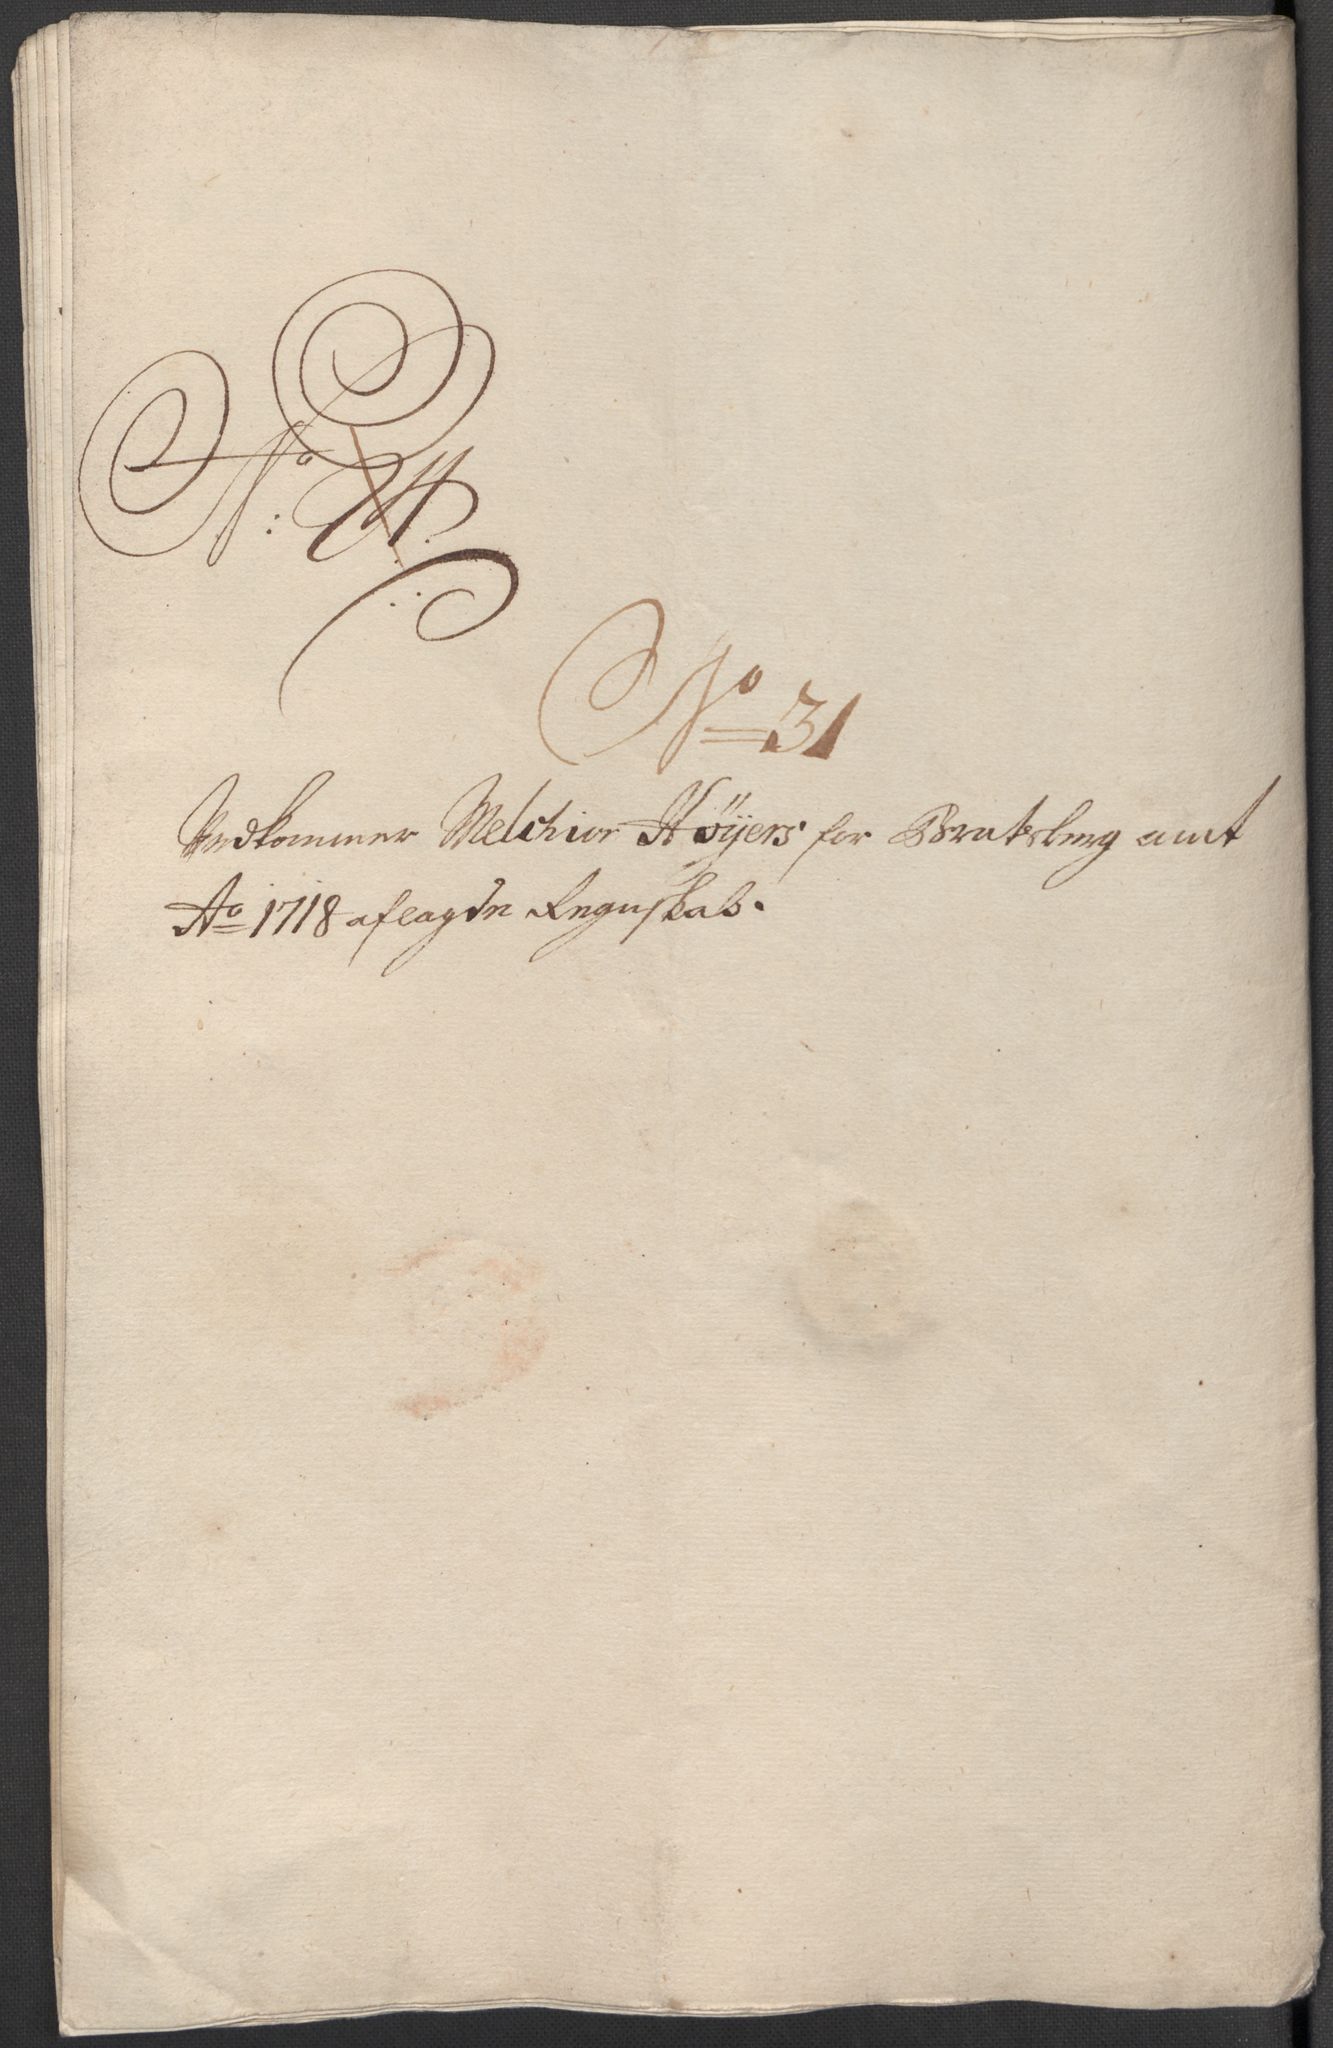 No:
No 31
Vedkommer Melchior Høÿers for Bratsberg amt
Ao 1718 aflagde Regnskab.